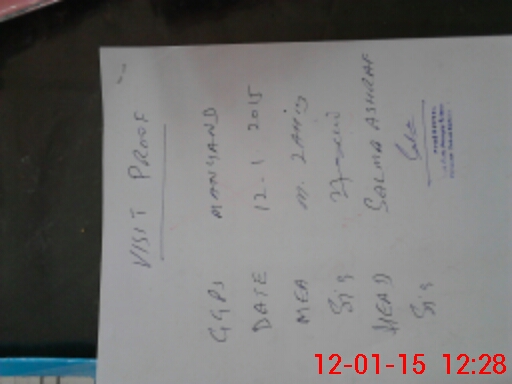 VISIT PROOF
GGPS MANGAND
DATE 12-1-2015
MEA M. ZAMIN
Sig
HEAD SALMA ASHRAF
Sig
12-01-15 12:28